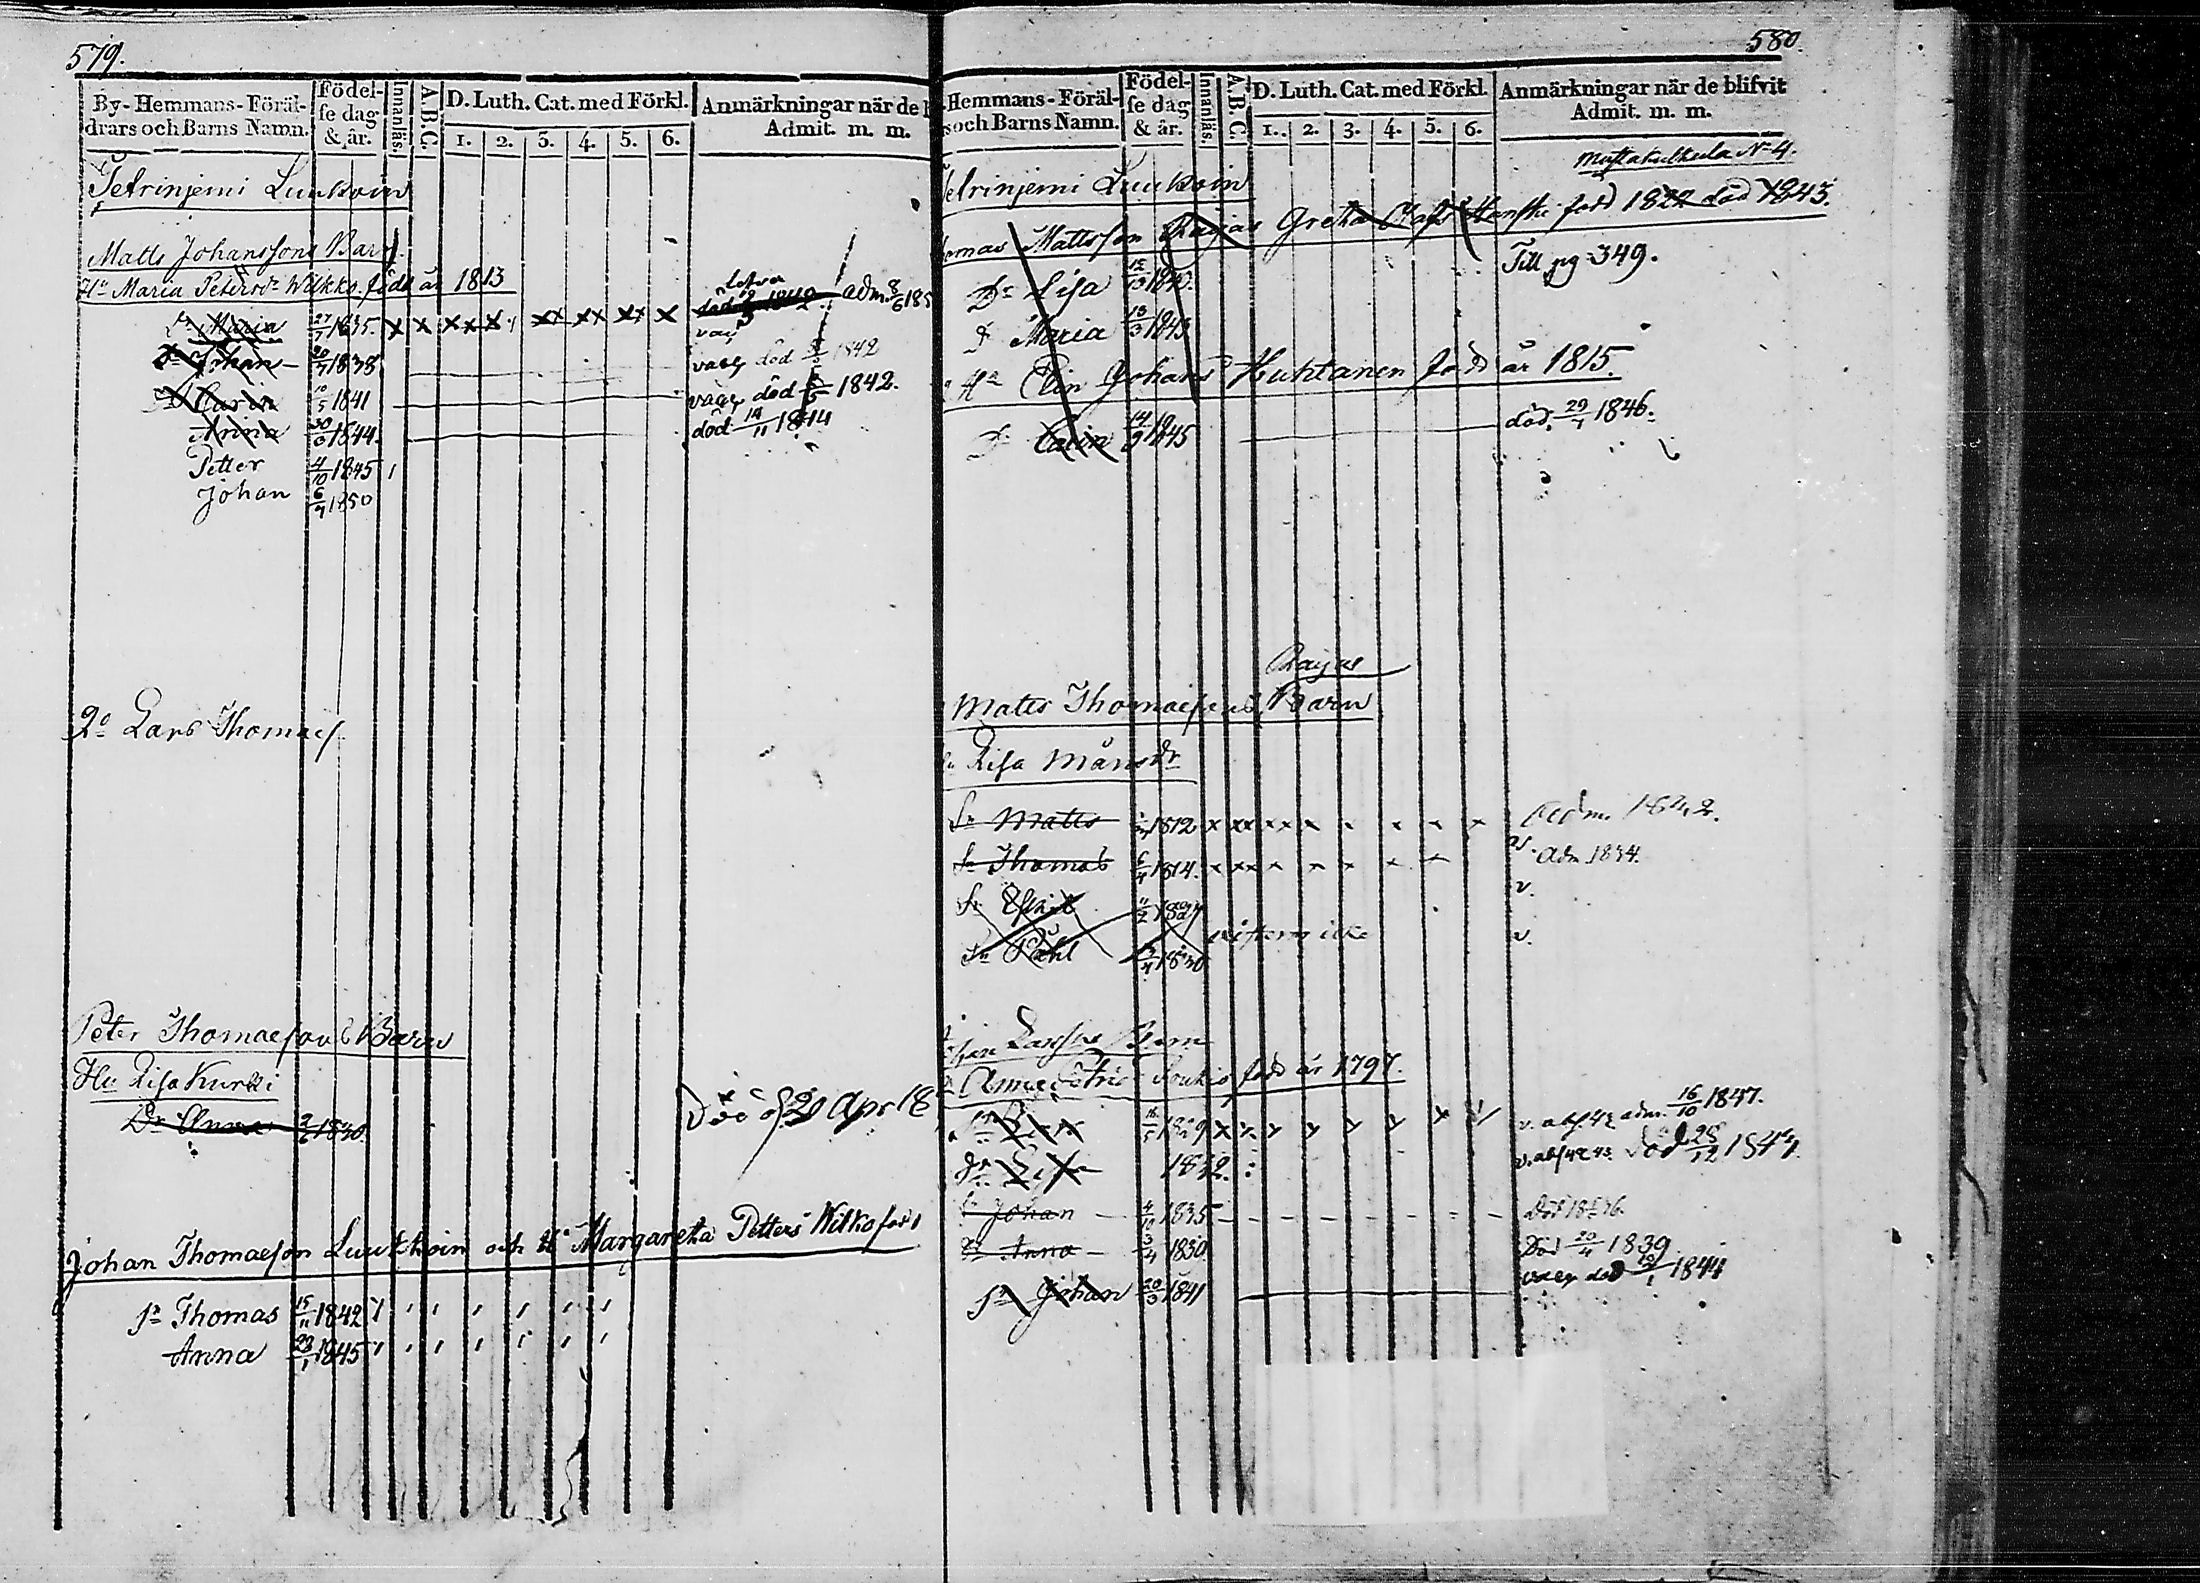 579.
By-Hemmans-Föräl-
drars och Barns Namn.
Födel-
se dag
& år.
Innanläs.
A.B.C.
D. Luth. Cat. med Förkl.
1. 2. 3. 4. 5. 6.
Anmärkningar när de
Admit. m. m.
Tetrinjemi Luukoin
Matts Johanssons Barn
Hu Maria Petersdr Wilkko född år 1813
Dr Maria 27/7 1835. x x x x x xx xx xx x adm. 8/6 185
Sn Johan 20/7 1838 vacc död 1842
Dr Carin 10/5 1841 vacc död 1842.
Anna 1844. död 14/11 1844
Petter 4/10 1845
Johan 6/4 1850
2o Lars Thomaes.
Peter Thomaesons Barn
Hu Lisa Kurki
Dr Anna 1830. Död d. 20 Apr 18
Johan Thomaeson Luukkoin och Hu Margareta Petters Wilko född
Sn Thomas 15/11 1842
Anna 23/1 1845
580.
Hemmans-Föräl-
s och Barns Namn.
Födel-
se dag
& år.
Innanläs.
A.B.C.
D. Luth. Cat. med Förkl.
1. 2. 3. 4. 5. 6.
Anmärkningar när de blifvit
Admit. m. m.
Mustakulkula No 4.
Tetrinjemi Luukoin
omas Mattsson Raijas Greta Olofs född 1822 död 1843.
Till pg 349.
Dr Lisa 1840.
Dr Maria 13/3 1843
Hu Elin Johans Huhtanen född år 1815.
Dr Carin 14/9 1845 död. 29/7 1846.
Raijas
Matts Thomaesons Barn
Hu Lisa Månsdr
Sn Matts 1812 x xx xx x x x x x Adm. 1842.
Sn Thomas 6/4 1814. x xx x x x x v. Adm 1834.
Sn Eskil v.
Sn Påhl 1830 v.
Larssons Barn
Anna Petri Soukis född år 1797.
1829 x x v. abs. 42 adm. 16/10 1847.
Dr Lisa 1832. v. abs 42 43 död 28/12 1844
Sn Johan 4/10 1835
Dr Anna 3/4 1830 Död 20/4 1839
Sn Johan 20/3 1841 vacc död 1844